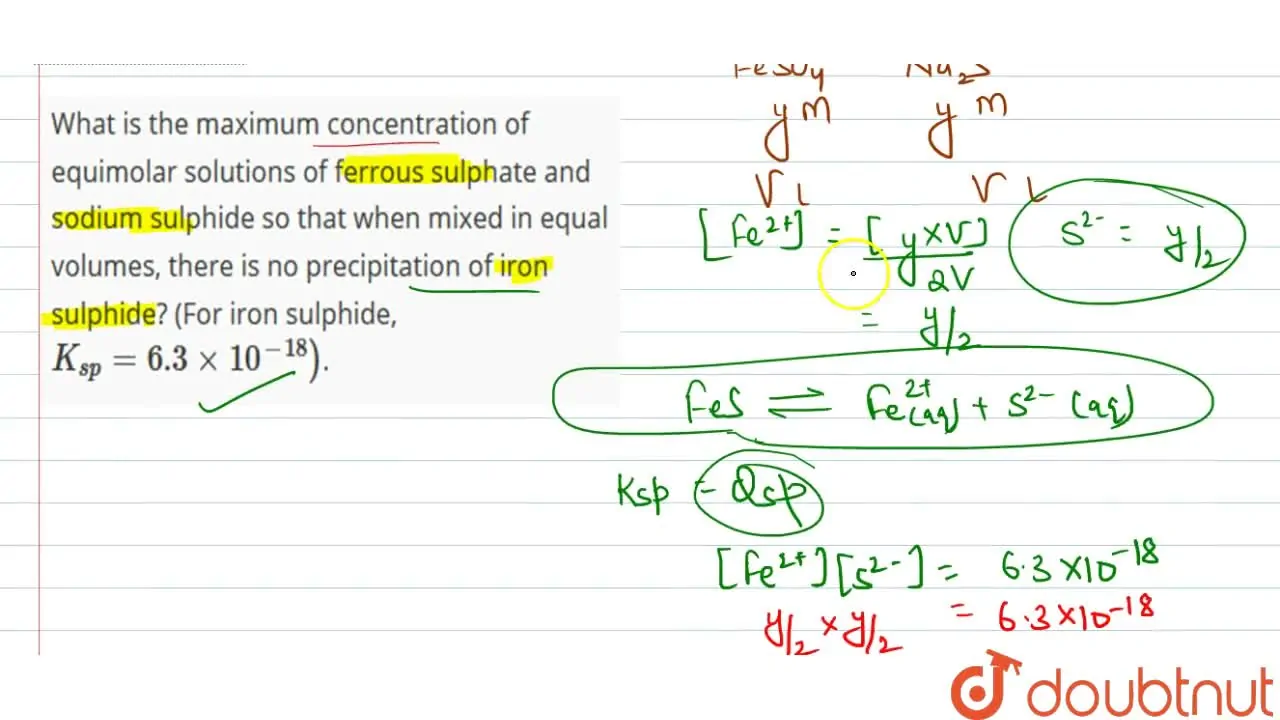 What is the maximum concentration of
equimolar solutions of ferrous sulphate and
sodium sulphide so that when mixed in equal
volumes, there is no precipitation of iron
sulphide? (For iron sulphide,
K_{sp} = 6.3 × 10^{-18}).
FeSO₄ Na₂S
y M y M
V L V L
[Fe²⁺] = [y×V] / 2V S²⁻ = y/2
= y/2
FeS ⇌ Fe²⁺(aq) + S²⁻ (aq)
Ksp = Qsp
[Fe²⁺][S²⁻] = 6.3 ×10⁻¹⁸
y/2 × y/2 = 6.3×10⁻¹⁸
doubtnut